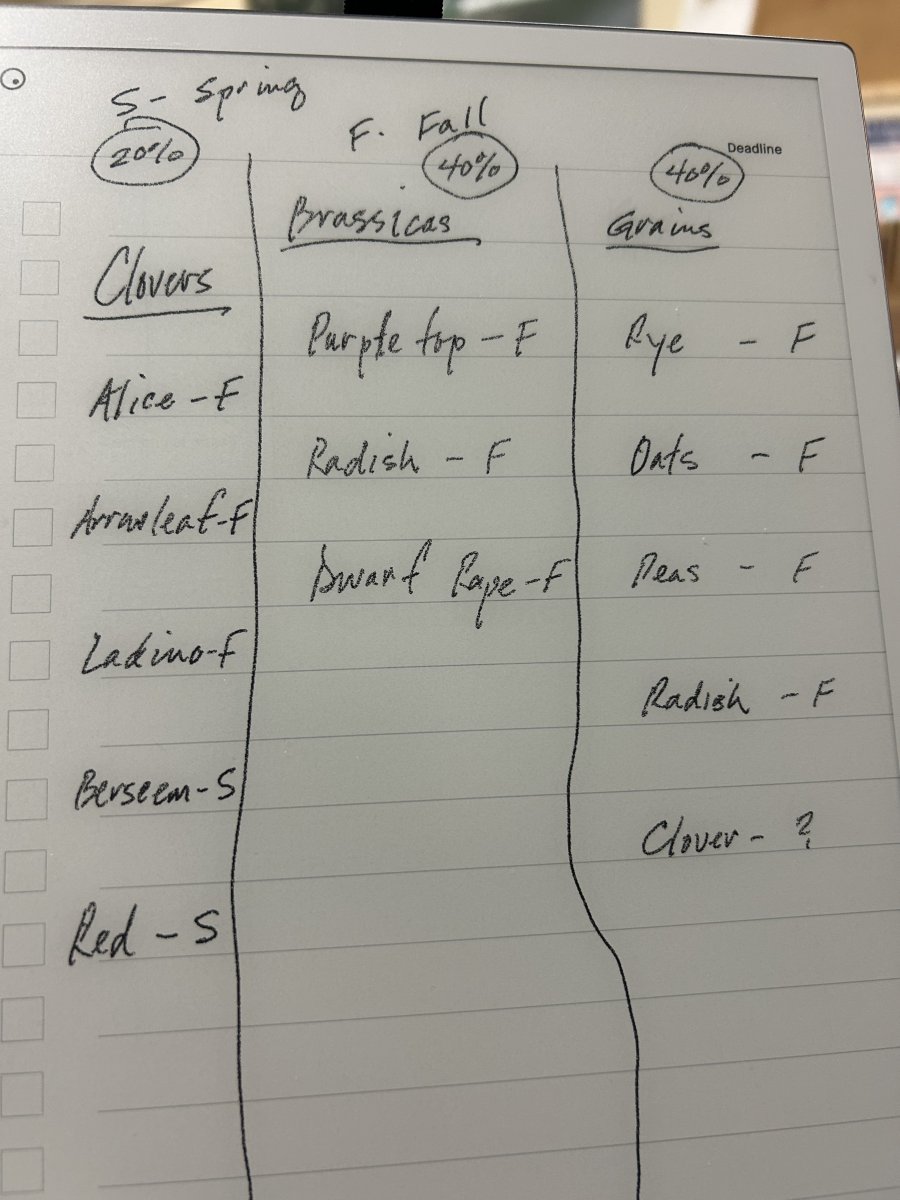 S - Spring
20%
F. Fall
40%
Deadline
40%
Clovers
Alice - F
Arrowleaf - F
Ladino - F
Berseem - S
Red - S
Brassicas
Purple top - F
Radish - F
Dwarf Rape - F
Grains
Rye - F
Oats - F
Peas - F
Radish - F
Clover - ?